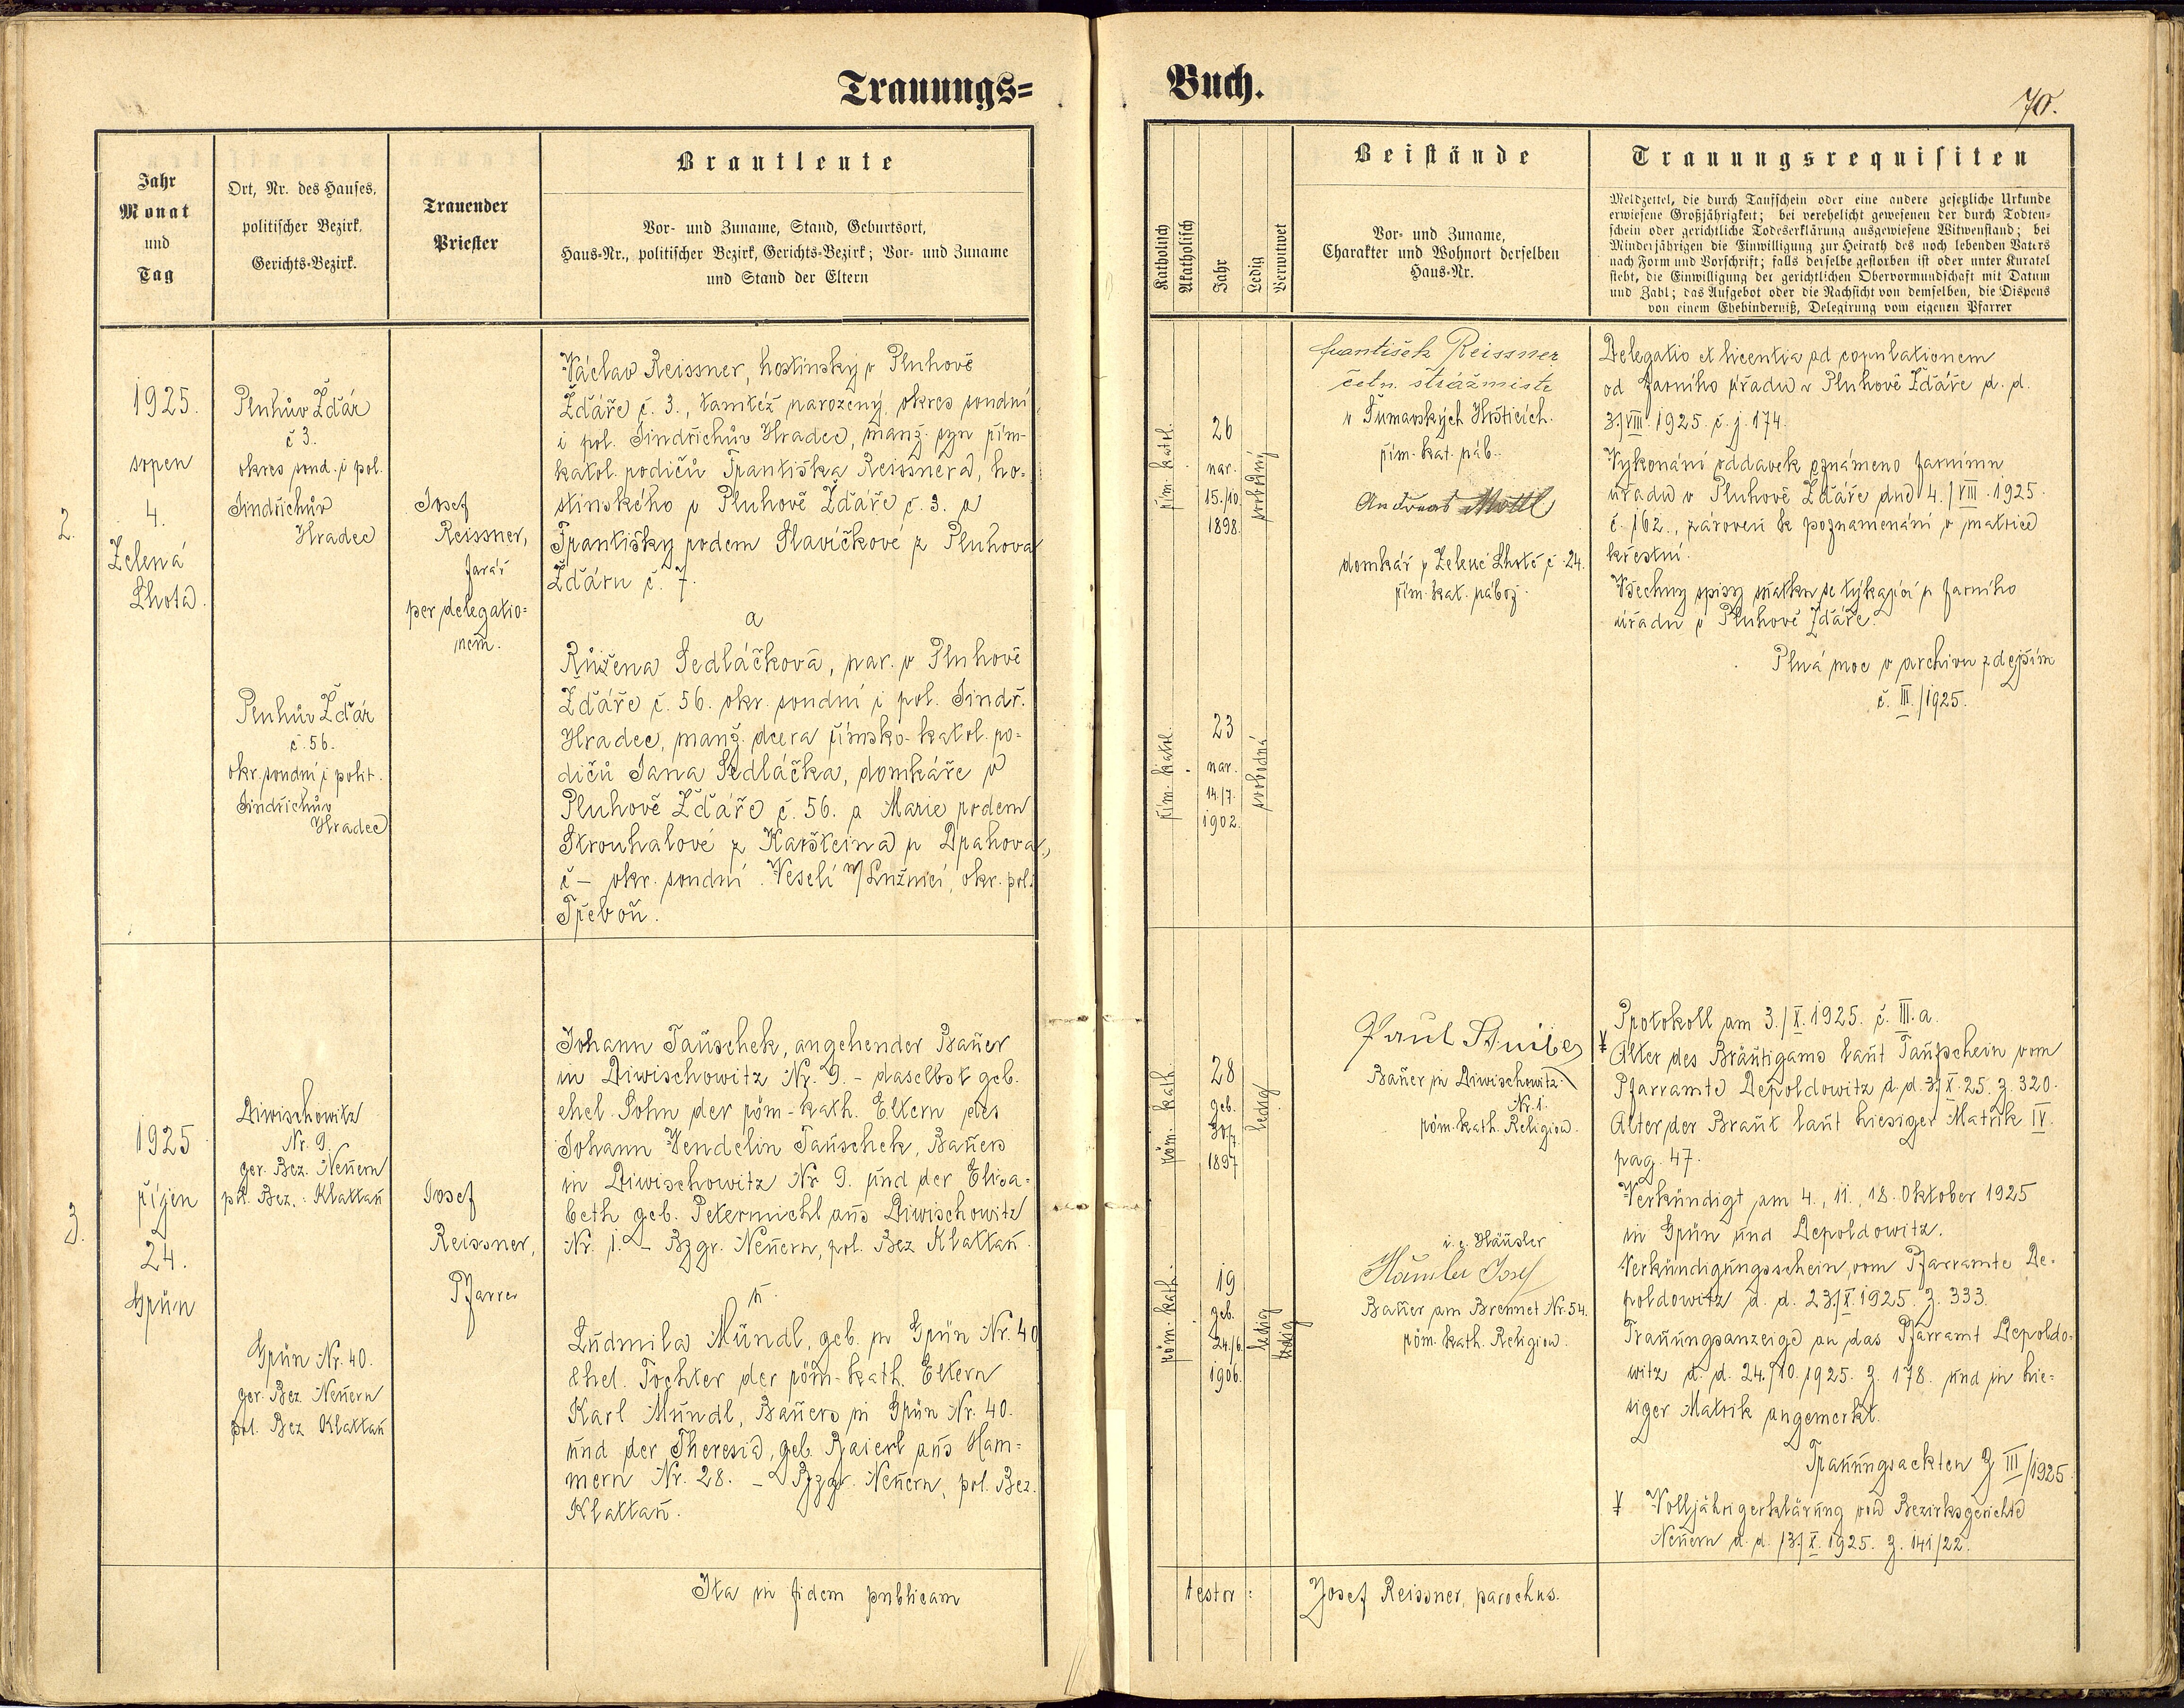 Trauungs=
Buch.
70.
Jahr
Monat
und
Tag
Ort, Nr. des Hauses,
politischer Bezirk,
Gerichts-Bezirk.
Trauender
Priester
Brautleute
Vor- und Zuname, Stand, Geburtsort,
Haus-Nr., politischer Bezirk, Gerichts-Bezirk; Vor- und Zuname
und Stand der Eltern
Katholisch
Akatholisch
Jahr
Ledig
Verwitwet
Beistände
Vor- und Zuname,
Charakter und Wohnort derselben
Haus-Nr.
Trauungsrequisiten
Meldzettel, die durch Taufschein oder eine andere gesetzliche Urkunde
erwiesene Großjährigkeit; bei verehelicht gewesenen der durch Todten-
schein oder gerichtliche Todeserklärung ausgewiesene Witwenstand; bei
Minderjährigen die Einwilligung zur Heirath des noch lebenden Vaters
nach Form und Vorschrift; falls derselbe gestorben ist oder unter Kuratel
steht, die Einwilligung der gerichtlichen Obervormundschaft mit Datum
und Zahl; das Aufgebot oder die Nachsicht von demselben, die Dispens
von einem Ehehinderniß, Delegirung vom eigenen Pfarrer
2.
1925.
srpen
4.
Zelená
Lhota.
Pluhův Žďár
č 3.
okres soud. i pol.
Jindřichův
Hradec
Pluhův Žďár
č. 56.
okr. soudní i polit.
Jindřichův
Hradec
Josef
Reissner,
farář
per delegatio=
nem.
Václav Reissner, hostinský v Pluhově
Žďáře č. 3., tamtéž narozený, okres soudní
i pol. Jindřichův Hradec, manž. syn řím-
katol. rodičů Františka Reissnera, ho=
stinského v Pluhově Žďáře č. 3. a
Františky rodem Slavíčkové z Pluhova
Žďáru č. 7.
a
Růžena Sedláčková, nar. v Pluhově
Žďáře č. 56. okr. soudní i pol. Jindř.
Hradec, manž. dcera římsko-katol. ro=
dičů Jana Sedláčka, domkáře v
Pluhově Žďáře č. 56. a Marie rodem
Strouhalové z Karšteina u Drahova,
č – okr. soudní Veselí n/Lužnicí, okr. pol.
Třeboň.
řím. katol.
26
nar.
15./10.
1898.
svobodný
řím. katol.
23
nar.
14./7.
1902.
svobodná
František Reissner
četn. strážmistr
v Šumavských Hošticích.
řím. kat. náb.
Andreas Mottl
domkář v Zelené Lhotě č. 24.
řím. kat. nábož.
Delegatio et licentia ad copulationem
od farního úřadu v Pluhově Žďáře d. d.
3./VIII. 1925. č. j. 174.
Vykonání oddavek oznámeno farnímu
úřadu v Pluhově Žďáře dne 4./VIII. 1925.
č. 162., zároveň k poznamenání v matrice
křestní.
Všechny spisy sňatku se týkající u farního
úřadu v Pluhově Žďáře.
Plná moc v archivu zdejším
č. III./1925.
3.
1925
říjen
24.
Grün
Diwischowitz
Nr. 9.
ger. Bez. Neuern
pol. Bez.: Klattau
Grün Nr. 40.
ger. Bez. Neuern
pol. Bez Klattau
Josef
Reissner,
Pfarrer
Johann Tauschek, angehender Bauer
in Diwischowitz Nr. 9. – daselbst geb.
ehel. Sohn der röm-kath. Eltern des
Johann Wendelin Tauschek, Bauers
in Diwischowitz Nr 9. und der Elisa=
beth geb. Petermichl aus Diwischowitz
Nr. 1. – Bzgr. Neuern, pol. Bez Klattau.
u.
Ludmila Mündl, geb. in Grün Nr. 40
ehel. Tochter der röm-kath. Eltern
Karl Mündl, Bauers in Grün Nr. 40.
und der Theresia, geb. Baierl aus Ham=
mern Nr. 28. – Bzgr. Neuern, pol. Bez.
Klattau.
röm. kath.
28
geb.
30/7.
1897
ledig
röm. kath.
19
geb.
24./6.
1906.
ledig
ledig
Paul
Bauer in Diwischowitz
Nr. 1.
röm. kath. Religion.
i. e. Häusler
Häusler Josef
Bauer am Brennet Nr. 54.
röm. kath. Religion.
Protokoll am 3./X. 1925. č. III. a.
Alter des Bräutigams laut Taufschein vom
Pfarramte Depoldowitz d. d. 3./X. 25. Z. 320.
Alter der Braut laut hiesiger Matrik IV.
pag. 47.
Verkündigt am 4., 11., 18. Oktober 1925
in Grün und Depoldowitz.
Verkündigungsschein vom Pfarramte De-
poldowitz d. d. 23./X. 1925. Z. 333.
Trauungsanzeige an das Pfarramt Depoldo-
witz d. d. 24./10. 1925. Z. 178. und in hie=
siger Matrik angemerkt.
Trauungsackten Z III/1925.
Volljährigerklärung vom Bezirksgerichte
Neuern d. d. 13./X. 1925. Z. 141/22.
Ita in fidem publicam
testor:
Josef Reissner, parochus.